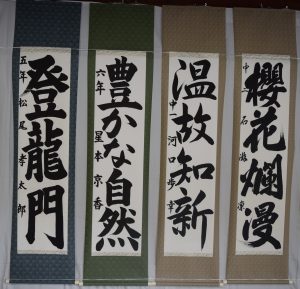 櫻花爛漫
中一 石
温故知新
中一 河口歩幸
豊かな自然
六年 星本京香
登龍門
五年 松尾孝太郎